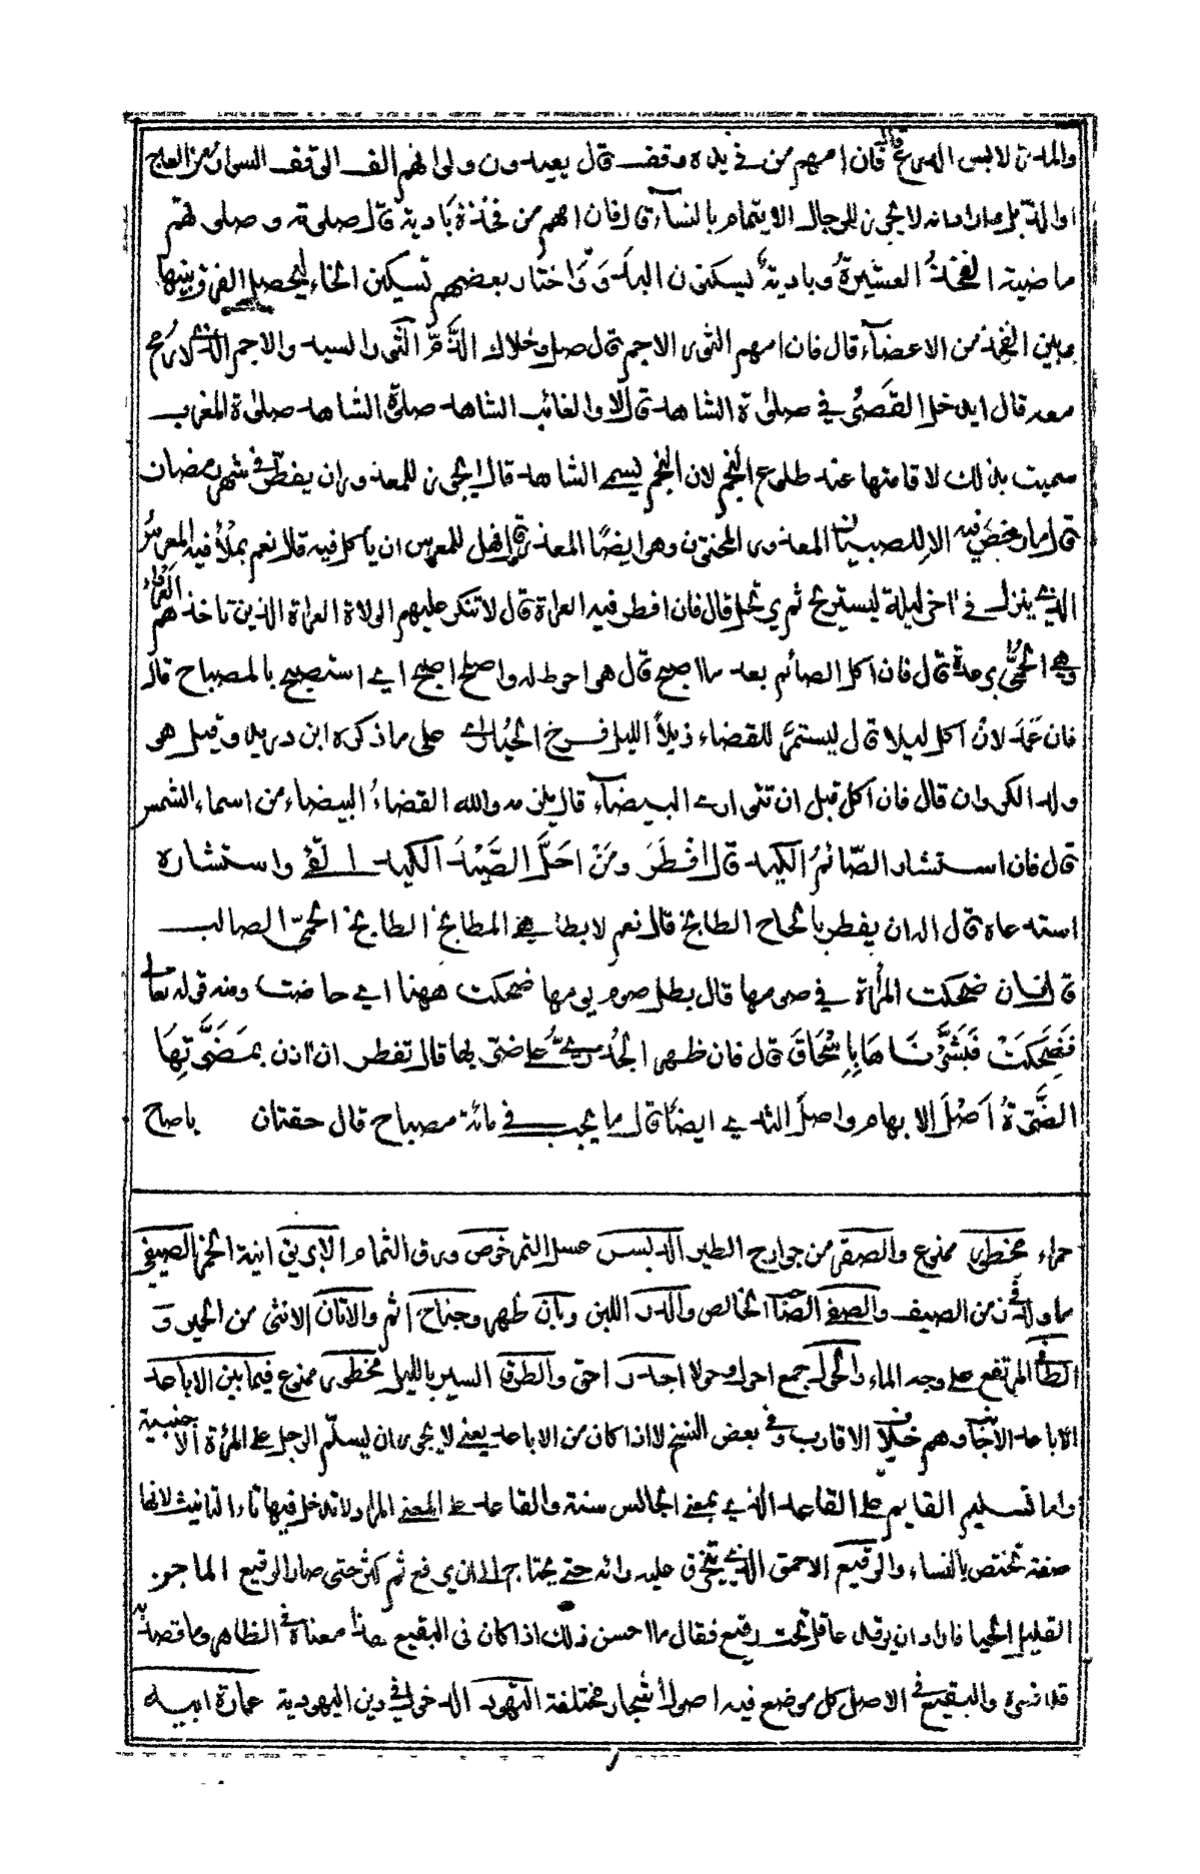 والمدرع لابس الدرع قال فان امهم من في يده وقف قال يعيدون ولو انهم الف الوقف السوار من العاج
او الذبل واراد انه لا يجوز للرجال الايتمام بالنساء قال فان امهم من فخذه بادية قال صلوته وصلوتهم
ماضية الفخذ العشيرة وبادية يسكنون البدو واختار بعضهم تسكين الخاء ليحصل الفرق بينها
وبين الفخذ من الاعضاء قال فان امهم الثور الاجم قال صل وخلاك الذم الثور السيد والاجم الذي لا رمح
معه قال ايدخل القصر في صلوة الشاهد قال لا والغائب الشاهد صلوة الشاهد صلوة المغرب
سميت بذلك لاقامتها عند طلوع النجم لان النجم يسمى الشاهد قال ايجوز للمعذور ان يفطر في شهر رمضان
قال ما رخص فيه الا للصبيان المعذور المختون وهو ايضا المعذر قال فهل للمعرس ان ياكل فيه قال نعم بملأ فيه المعرس
الذي ينزل في اخر ليلة ليستريح ثم يرتحل قال فان افطر فيه العراة قال لا تنكر عليهم الولاة العراة الذين تاخذهم العرواء
وهي الحمى برعدة قال فان اكل الصائم بعد ما اصبح قال هو احوط له واصلح اصبح اي استصبح بالمصباح قال
فان عمد لان اكل ليلا قال ليستمر للقضاء ذيلا الليل فرخ الحبارى على ما ذكره ابن دريد وقيل هو
ولد الكروان قال فان اكل قبل ان تتوارى البيضاء قال يلزمه والله القضاء البيضاء من اسماء الشمس
قال فان استشار الصائم الكيد قال افطر ومن احل الصيد الكيد القئ واستشاره
استدعاه قال اله ان يفطر بالحاح الطابخ قال نعم لا بطاهي المطابخ الطابخ الحمى الصالب
قال فان ضحكت المرأة في صومها قال بطل صوم يومها ضحكت ههنا اي حاضت ومنه قوله تعالى
فَضَحِكَتْ فَبَشَّرْنَاهَا بِإِسْحَاقَ قال فان ظهر الجدري على ضرتها قال تفطر ان اذن بمضرتها
الضرة اصل الابهام واصل الثدي ايضا قال ما يجب في مائة مصباح قال حقتان يا صاح
حمراء محظور ممنوع والصقر من جوارح الطير الدبس عسل التمر خوص ورق الثمام الاباريق انية الخمر الصيفي
ما ولد في زمن الصيف والصفو الصفا الخالص والدر اللبن وبان ظهر وجناح اثم والاتان الانثى من الحمير و
الطافي المرتفع على وجه الماء والحول جمع احول وحولا اجدر احق والطرق السير بالليل محظور ممنوع فيما بين الاباعد
الاباعد الاجانب وهم خلاف الاقارب وفي بعض النسخ لا اذا كان من الاباعد يعني لا يجوز ان يسلم الرجل على المرأة الاجنبية
واما تسليم القايم على القاعد الذي بمعنى الجالس سنة والقاعد على المعنى المراد لا تدخل فيها تاء التانيث لانها
صفة تختص بالنساء والرقيع الاحمق الذي يتخرق عليه رائه حتى يحتاج الى ان يرفع ثم كثر حتى صار الرقيع الماجن
القليل الحيا فاراد ان يرقد عاقل تحت رقيع فقال ما احسن ذلك اذا كان في البقيع هذا معناه في الظاهر وما قصد به
قد فسره والبقيع في الاصل كل موضع فيه اصول اشجار مختلفة التهود الدخول في دين اليهودية عمارة ابيه